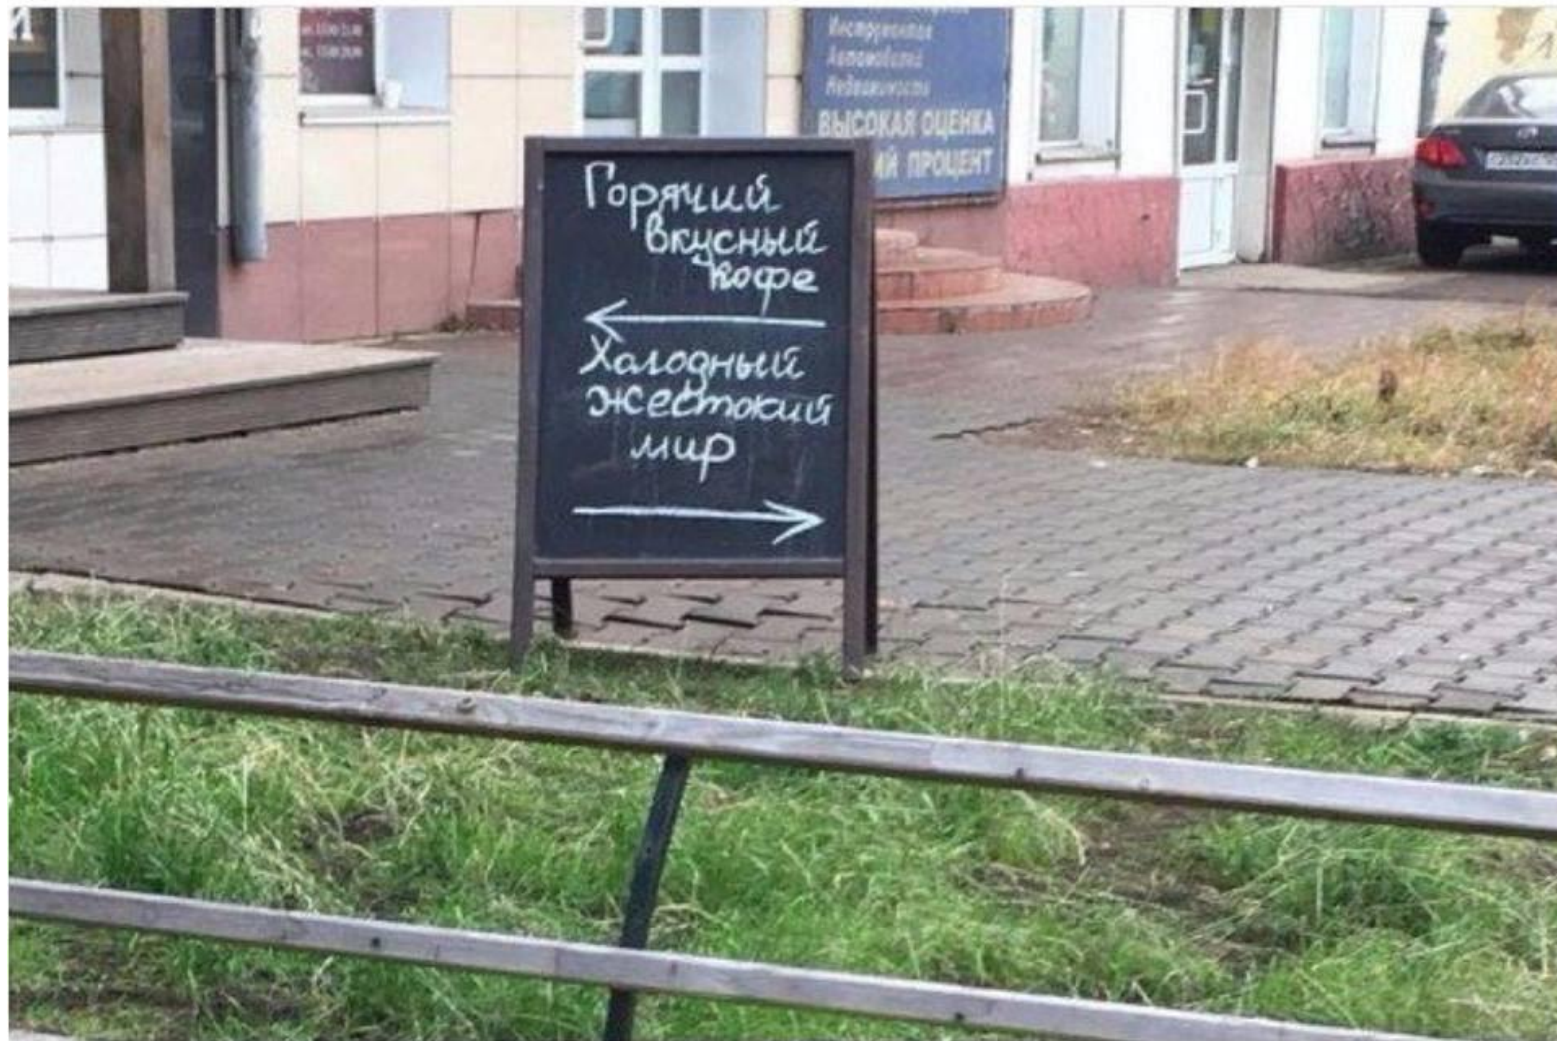 Инструментов
Автомобилей
Недвижимости
ВЫСОКАЯ ОЦЕНКА
ПРОЦЕНТ
Горячий
вкусный
кофе
Холодный
жестокий
мир